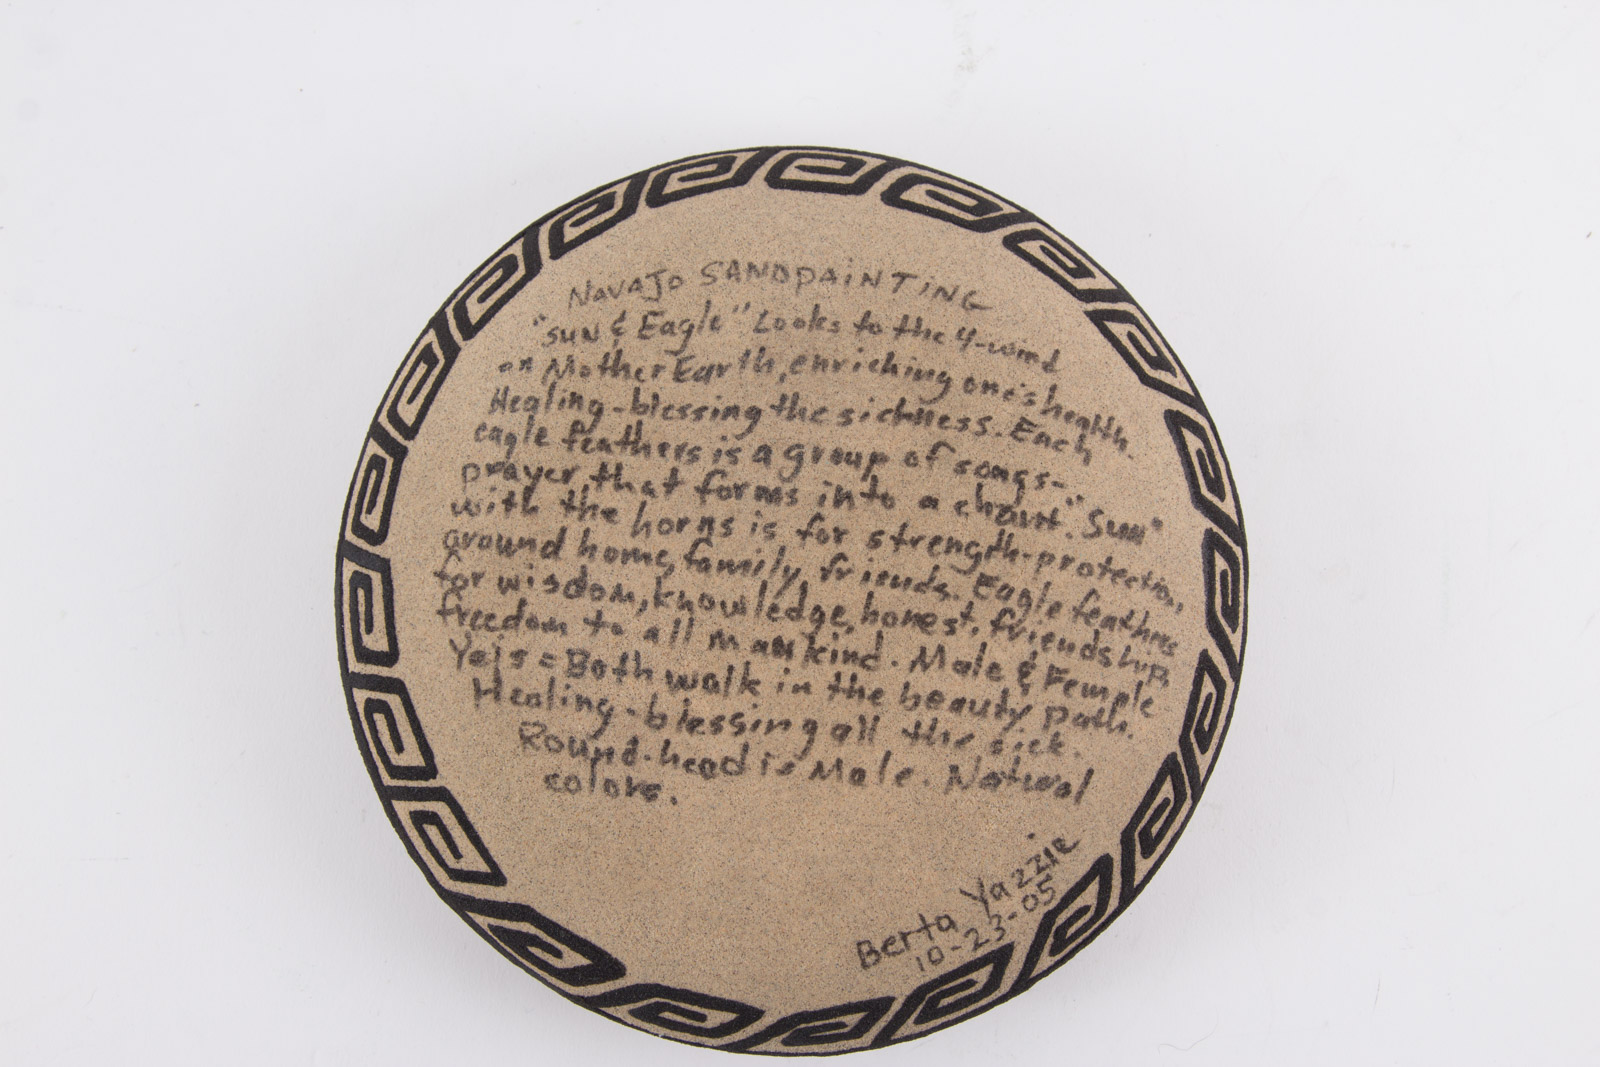 NAVAJO SANDPAINTING
"SUN & Eagle" Looks to the 4-wind
on Mother Earth, enriching one's health.
Healing-blessing the sickness. Each
eagle feathers is a group of songs-
prayer, that forms into a chant. "Sun"
with the horns is for strength-protection,
around home, family, friends. Eagle feathers
for wisdom, knowledge, honest, friendship,
freedom to all mankind. Male & Female
Yeis = Both walk in the beauty path.
Healing-blessing all the sick.
Round-head is Male. Natural
colors.
Berta Yazzie
10-23-05